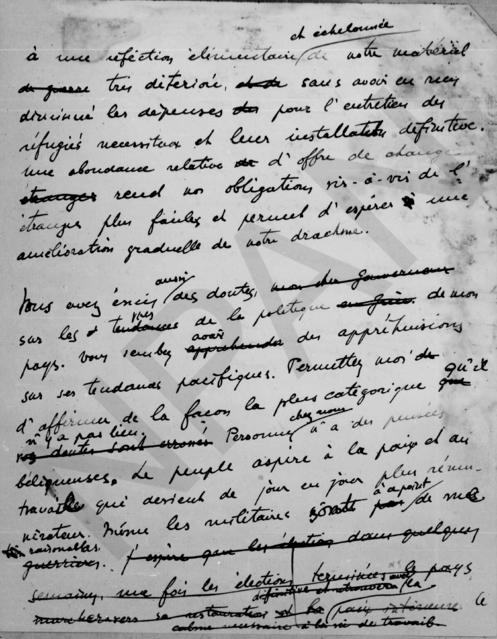 et échelonnée
à une réfection élémentaire de notre matériel
de guerre très déterioré, sans avoir en rien
diminué les dépenses pour l'entretien des
réfugiés necessiteux et leur installation définitive.
une abondance relative d'offre de change
étranger rend nos obligations vis-à-vis de l'
étranger plus faciles et permet d'espérer à une
amélioration graduelle de notre drachme.
aussi
Vous avez émis des doutes, mon cher Gouverneur
sur les tendances de la politique de mon
avoir
pays. Vous semblez apprehender des appréhensions
sur ses tendances pacifiques. Permettez moi qu'il
d'affirmer de la façon la plus catégorique que
n'y a pas lieu, chez nous
vos doutes sont erronés Personne n'a des pensées
béliqueuses. Le peuple aspire à la paix et au
travail qui devient de jour en jour plus rému-
à part
nérateur. Même les militaires sont pas de
raisonables
guerrières. J'espère que les dans quelques
semaines, une fois les élections terminées le pays
définitive et
sa restauration et la paix intérieure
calme necessaire à la vie de travail
NPA